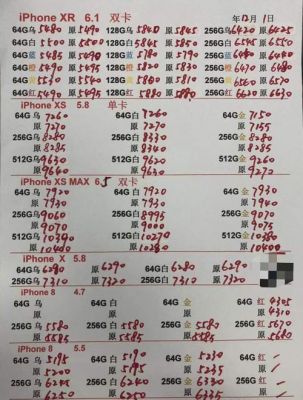 iPhone XR 6.1 双卡 年12月1日
64G乌 5480 原 5490 128G乌 5840 原 5845 256G乌 6420 原 6425
64G白 5500 原 5500 128G白 5845 原 5850 256G白 6545 原 6550
64G蓝 5485 原 5490 128G蓝 5780 原 5790 256G蓝 6430 原 6450
64G橙 5490 原 5495 128G橙 5820 原 5830 256G橙 6470 原 6480
64G黄 5530 原 5540 128G黄 5800 原 5810 256G黄 6560 原 6570
64G红 5490 原 5495 128G红 5880 原 5880 256G红 6620 原 6630
iPhone XS 5.8 单卡
64G乌 7260 64G白 7260 64G金 7150
原 7270 原 7270 原 7155
256G乌 8280 256G白 8330 256G金 8280
原 8285 原 8340 原 8285
512G乌 9630 512G白 9630 512G金 9260
原 9640 原 9640 原 9270
iPhone XS MAX 6.5 双卡
64G乌 7920 64G白 7920 64G金 7930
原 7930 原 7930 原 7940
256G乌 9060 256G白 8995 256G金 9070
原 9070 原 9000 原 9075
512G乌 10390 512G白 10270 512G金 10380
原 10390 原 10280 原 10400
iPhone X 5.8
64G乌 6280 原 6290 64G白 6280 原 6290
256G乌 7310 原 7320 256G白 7310 原 7320
iPhone 8 4.7
64G乌 64G白 64G金 64G红 4305
原 原 原 原 4310
256G乌 5580 256G白 5580 256G金 5580 256G红 5670
原 5585 原 5585 原 5585 原 5680
iPhone 8 5.5
64G乌 5195 64G白 5190 64G金 5230 64G红
原 5200 原 5195 原 5235 原
256G乌 6245 256G白 6240 256G金 6330 256G红
原 6250 原 6250 原 6335 原